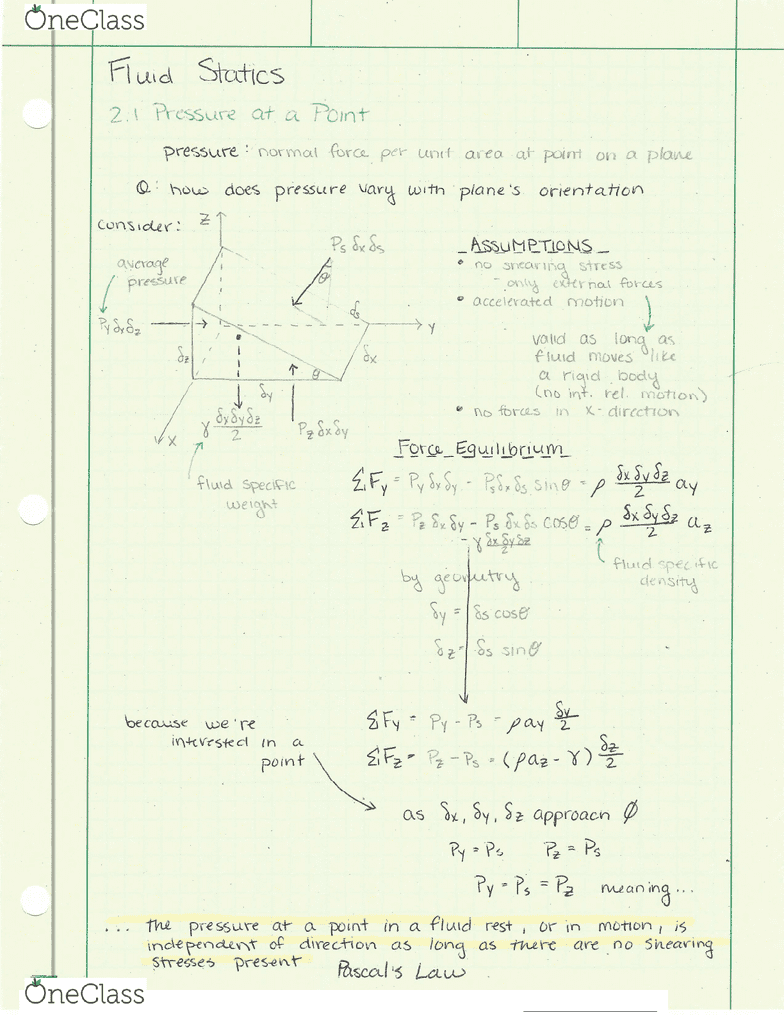 OneClass
Fluid Statics
2.1 Pressure at a Point
pressure: normal force per unit area at point on a plane
Q: how does pressure vary with plane's orientation
consider:
Z
Ps δx δs
θ
average
pressure
Py δx δz
δs
y
δz
δx
θ
δy
x
γ δxδyδz/2
Pz δx δy
fluid specific
weight
ASSUMPTIONS
• no shearing stress
- only external forces
• accelerated motion
valid as long as
fluid moves like
a rigid body
(no int. rel. motion)
• no forces in x-direction
Force Equilibrium
ΣFy = Py δx δy - Ps δx δs sinθ = ρ δx δy δz/2 ay
ΣFz = Pz δx δy - Ps δx δs cosθ = ρ δx δy δz/2 az
- γ δx δy δz/2
fluid specific
density
by geometry
δy = δs cosθ
δz = δs sinθ
because we're
interested in a
point
ΣFy = Py - Ps = ρ ay δy/2
ΣFz = Pz - Ps = (ρaz - γ) δz/2
as δx, δy, δz approach ∅
Py = Ps Pz = Ps
Py = Ps = Pz meaning...
... the pressure at a point in a fluid rest, or in motion, is
independent of direction as long as there are no shearing
stresses present
Pascal's Law
OneClass